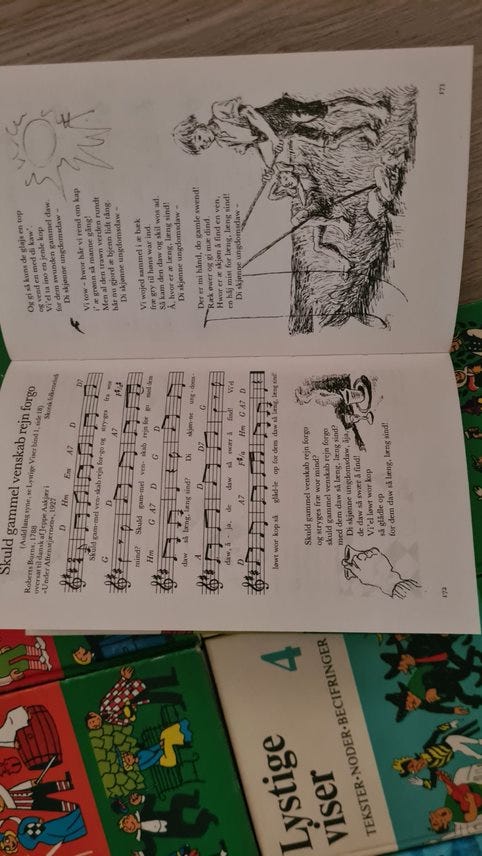 Skuld gammel venskab rejn forgo
(Auld lang syne, se Lystige Viser bind 1, side 18)
Roberts Burns, 1788
oversat til dansk af Jeppe Aakjær i
»Under Aftenstjærnen«, 1922
Skotsk folkemelodi
D Hm Em A7 D D7
Skuld gam-mel ven-skab rejn for-go og stry-ges fra wor
G D A7
mind? Skuld gam-mel ven-skab rejn for go med dem
Hm G A7 D G D
daw så læng, læng sind? Di skjøn-ne ung-doms-
A D D7 G
daw, å - ja, de daw så swær å find! Vi'el
D A7 Hm G A7 D
løwt wor kop så glåd-le op for dem daw så læng, læng sind!
Skuld gammel venskab rejn forgo
og stryges fræ wor mind?
skuld gammel venskab rejn forgo
med dem daw så læng, læng sind?
Di skjønne ungdomsdaw, åja,
de daw så swær å find!
Vi'el løwt wor kop
så glådle op
for dem daw så læng, læng sind!
172
Og gi så kuns de glajs en top
og vend en med di kaw'.
Vi'el ta ino en jenle kop
for dem swunden gammel daw.
Di skjønne ungdomsdaw –
Vi tow – hwor hår vi rend om kap
i' æ grønn så manne gång!
Men al den trawn verden rundt
hår nu gjord æ bjenn lidt tång.
Di skjønne ungdomsdaw –
Vi wojed sammel i æ bæk
fræ gry til høns war ind.
Så kam den daw og skil wos ad.
Å, hvor er æ læng, læng sind!
Di skjønne ungdomsdaw –
Der er mi hånd, do gamle swend!
Ræk øwer og gi mæ dind.
Hwor er æ skjøn å find en ven,
en håj mist for læng, læng sind!
Di skjønne ungdomsdaw –
173
Lystige
viser
4
TEKSTER·NODER·BECIFRINGER